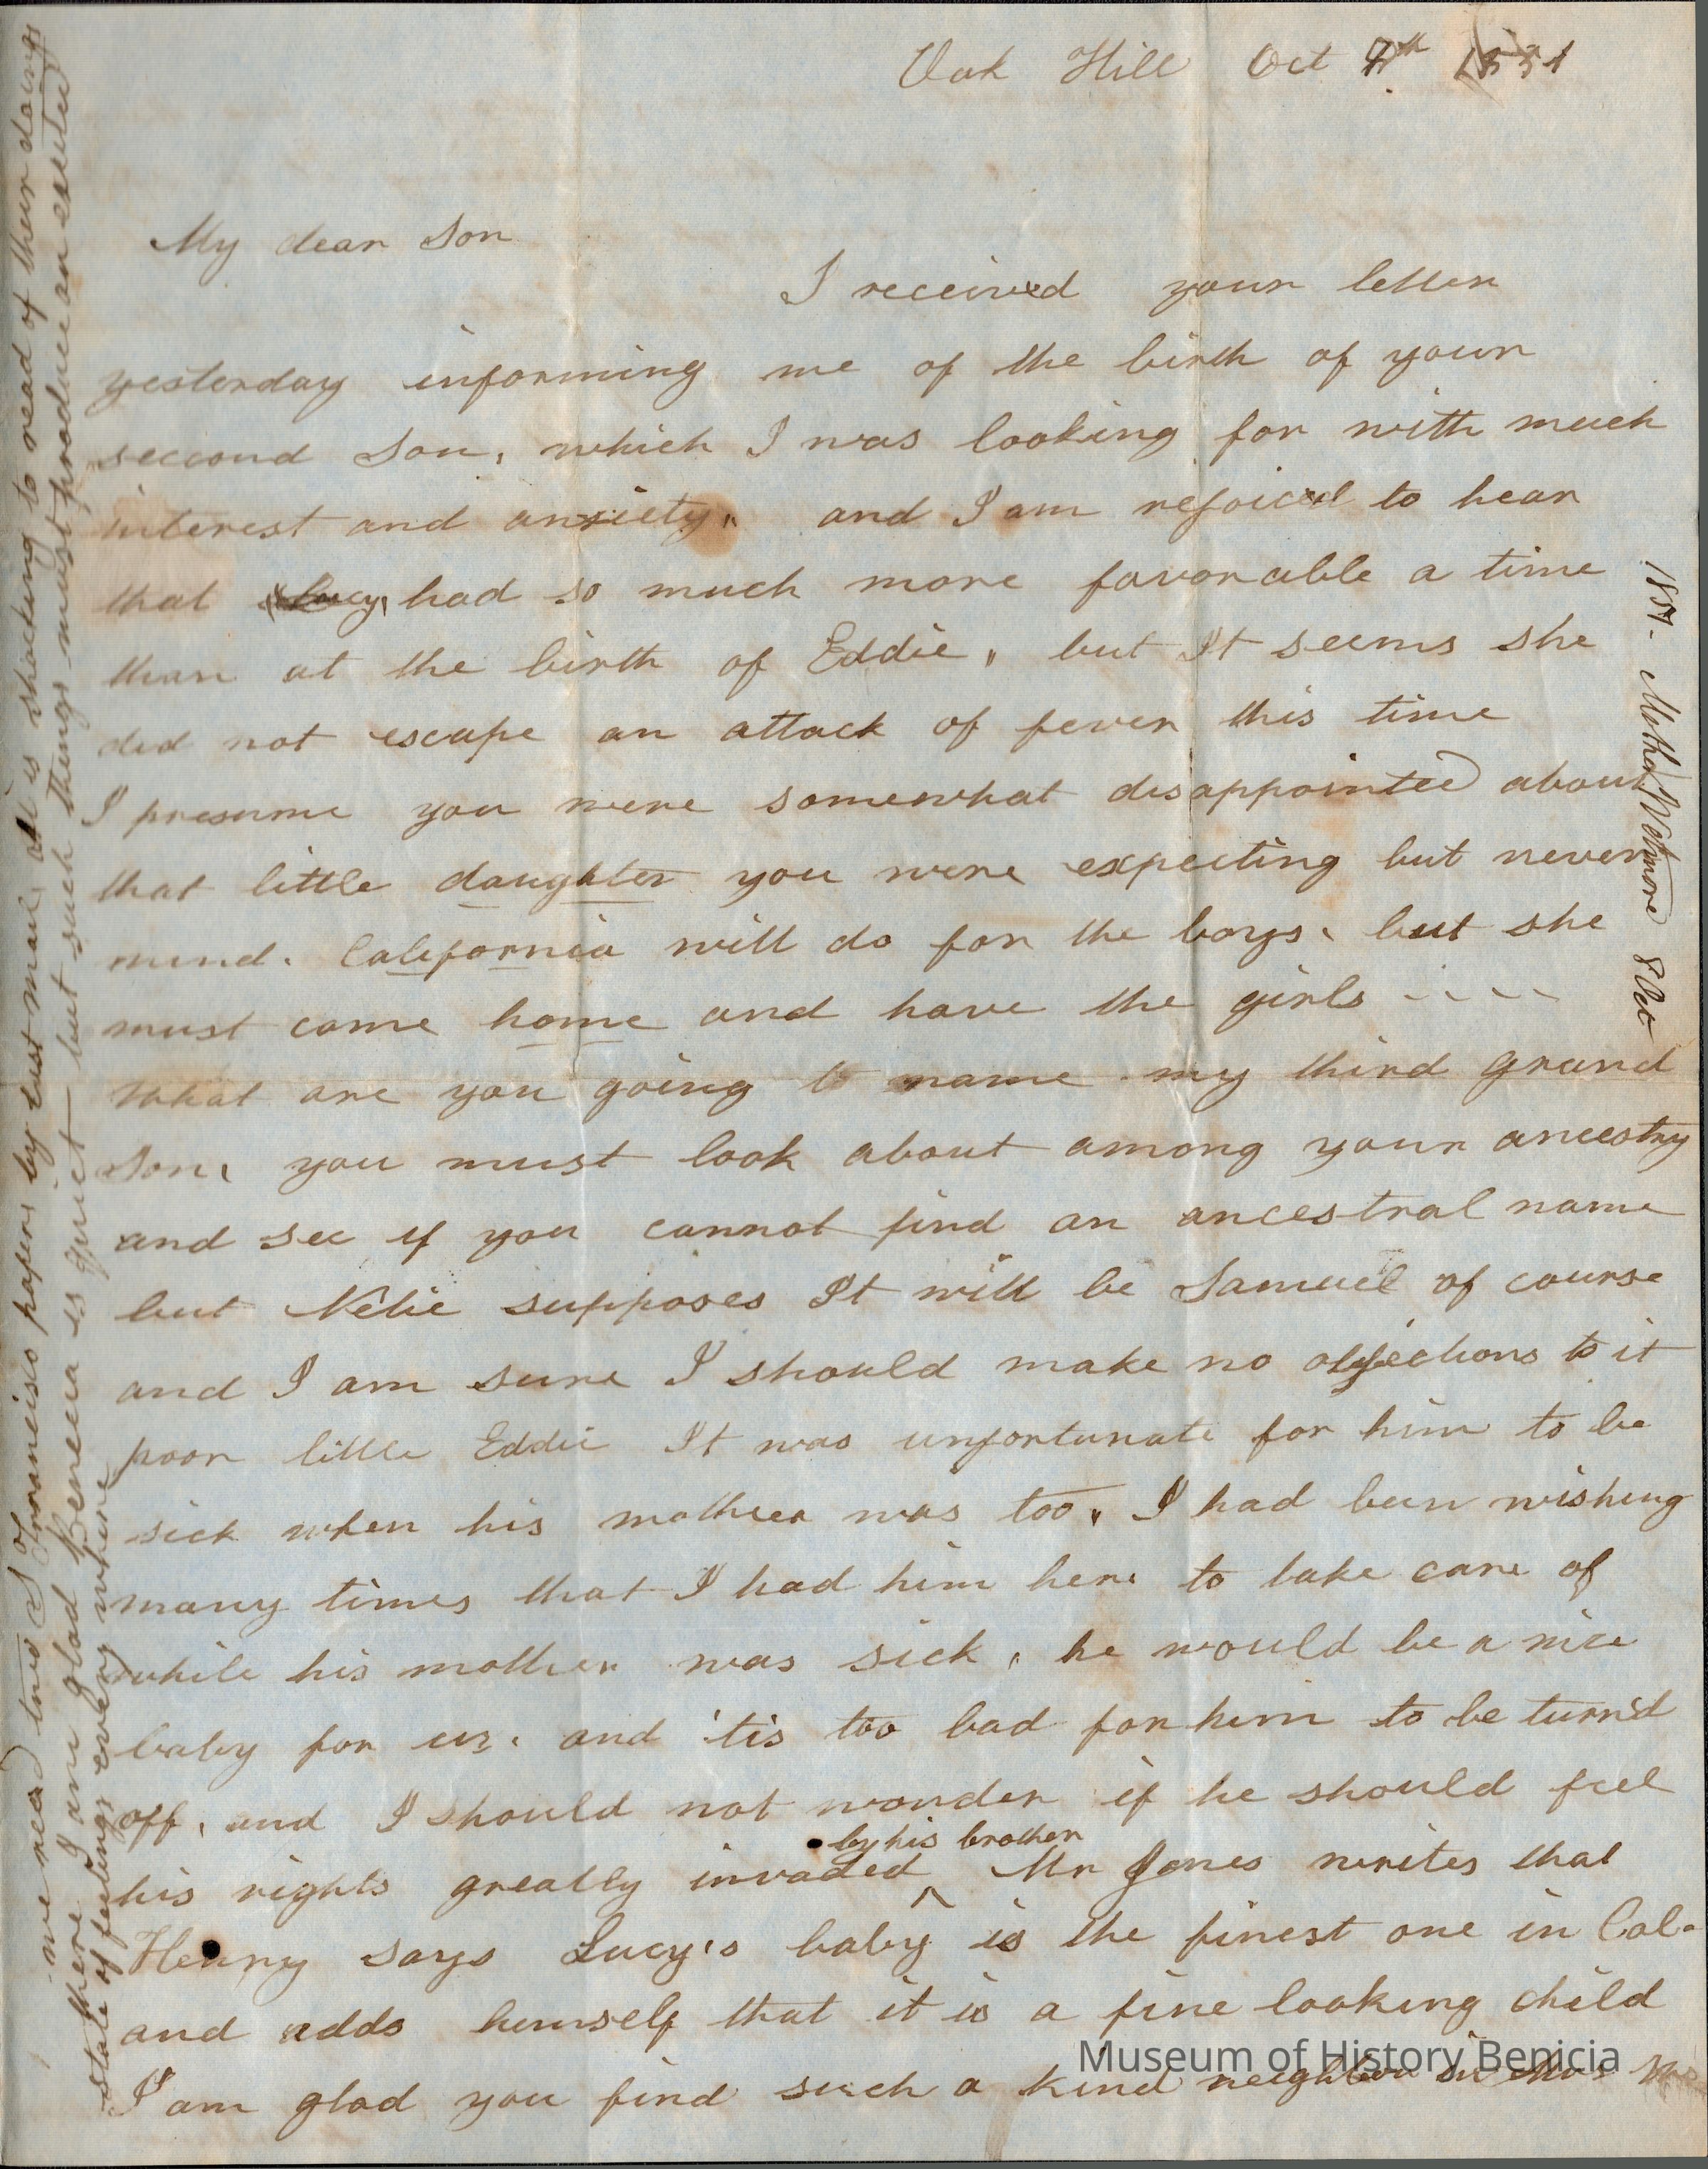 Oak Hill Oct 8th 1851
My dear Son
I received your letter
yesterday informing me of the birth of your
seccond Son, which I was looking for with much
interest and anxiety, and I am rejoiced to hear
that Lucy, had so much more favorable a time
than at the birth of Eddie, but It seems she
did not escape an attack of fever this time
I presume you were somewhat disappointed about
that little daughter you were expecting but never
mind. California will do for the boys, but she
must come home and have the girls - - - -
What are you going to name my third grand
Son, you must look about among your ancestry
and see if you cannot find an ancestral name
but Nelie supposes It will be Samuel of course
and I am sure I should make no objections to it
poor little Eddie It was unfortunate for him to be
sick when his mother was too, I had been wishing
many times that I had him here to take care of
while his mother was sick, he would be a nice
baby for us, and 'tis too bad for him to be turn'd
off, and I should not wonder if he should feel
by his brother
his rights greatly invaded ^ Mr Jones writes that
Henry says Lucy's baby is the finest one in Cal.
and adds himself that it is a fine looking child
I am glad you find such a kind neighbor in Mrs
1851- Mother Wetmore 8 Oct
we read the S Francisco papers by last mail, it is shocking to read of their doings
there I am glad Benecia is quiet but such things must produce an excited
state of feelings every where
Museum of History Benicia